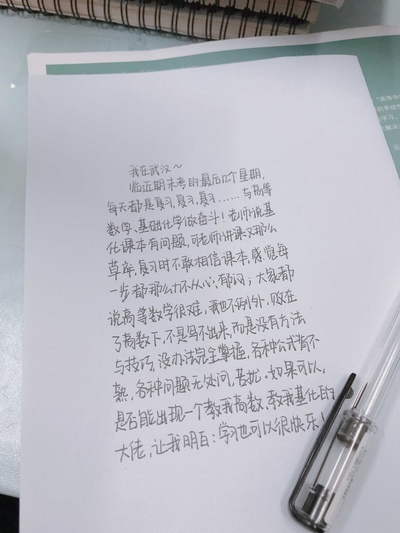 我在武汉~
临近期末考的最后1个星期,
每天都是复习,复习,复习……与高等
数学、基础化学做奋斗!老师说基
化课本有问题,可老师讲课又那么
草率,复习时不敢相信课本,感觉每
一步都那么力不从心,郁闷;大家都
说高等数学很难,我也不例外,败在
了高数下,不是写不出来,而是没有方法
与技巧,没办法完全掌握,各种公式背不
熟,各种问题无处问,甚扰,如果可以,
是否能出现一个教我高数,教我基化的
大佬,让我明白:学习也可以很快乐!